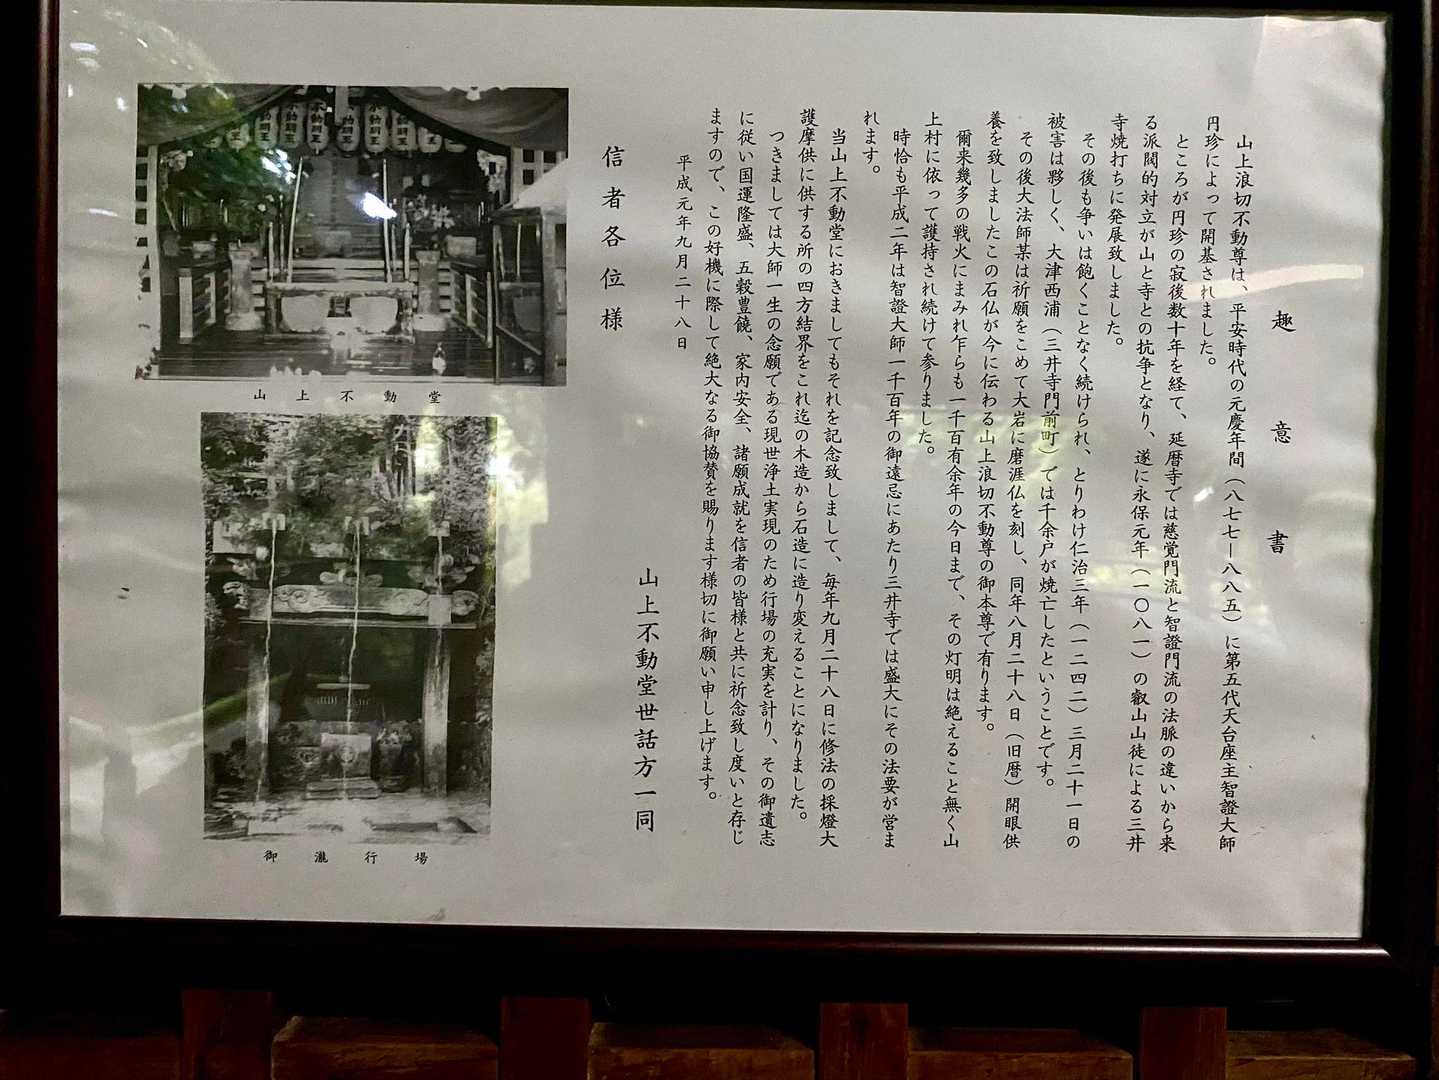 趣意書
山上浪切不動尊は、平安時代の元慶年間（八七七―八八五）に第五代天台座主智證大師
円珍によって開基されました。
ところが円珍の寂後数十年を経て、延暦寺では慈覚門流と智證門流の法脈の違いから来
る派閥的対立が山と寺との抗争となり、遂に永保元年（一〇八一）の叡山山徒による三井
寺焼打ちに発展致しました。
その後も争いは飽くことなく続けられ、とりわけ仁治三年（一二四二）三月二十一日の
被害は夥しく、大津西浦（三井寺門前町）では千余戸が焼亡したということです。
その後大法師某は祈願をこめて大岩に磨涯仏を刻し、同年八月二十八日（旧暦）開眼供
養を致しましたこの石仏が今に伝わる山上浪切不動尊の御本尊で有ります。
爾来幾多の戦火にまみれ乍らも一千百有余年の今日まで、その灯明は絶えること無く山
上村に依って護持され続けて参りました。
時恰も平成二年は智證大師一千百年の御遠忌にあたり三井寺では盛大にその法要が営ま
れます。
当山上不動堂におきましてもそれを記念致しまして、毎年九月二十八日に修法の採燈大
護摩供に供する所の四方結界をこれ迄の木造から石造に造り変えることになりました。
つきましては大師一生の念願である現世浄土実現のため行場の充実を計り、その御遺志
に従い国運隆盛、五穀豊饒、家内安全、諸願成就を信者の皆様と共に祈念致し度いと存じ
ますので、この好機に際して絶大なる御協賛を賜ります様切に御願い申し上げます。
平成元年九月二十八日
山上不動堂世話方一同
信者各位様
山上不動堂
御瀧行場